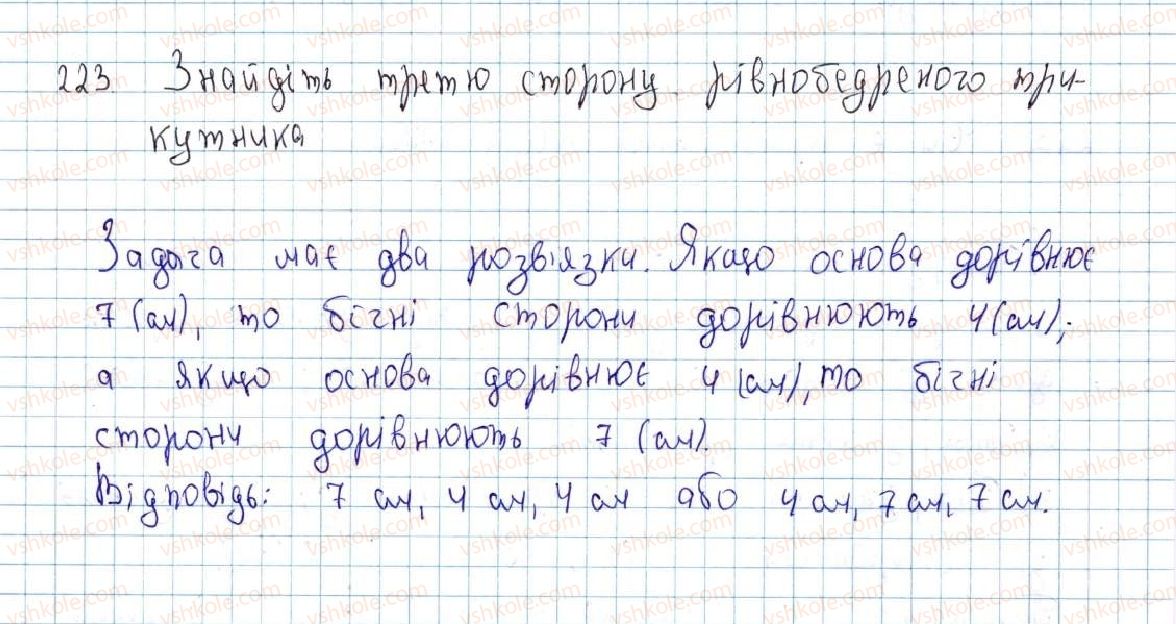 223. Знайдіть третю сторону рівнобедреного три-
кутника
Задача має два розвіязки. Якщо основа дорівнює
7 (см), то бічні сторони дорівнюють 4 (см);
а якщо основа дорівнює 4 (см), то бічні
сторони дорівнюють 7 (см).
Відповідь: 7 см, 4 см, 4 см або 4 см, 7 см, 7 см.